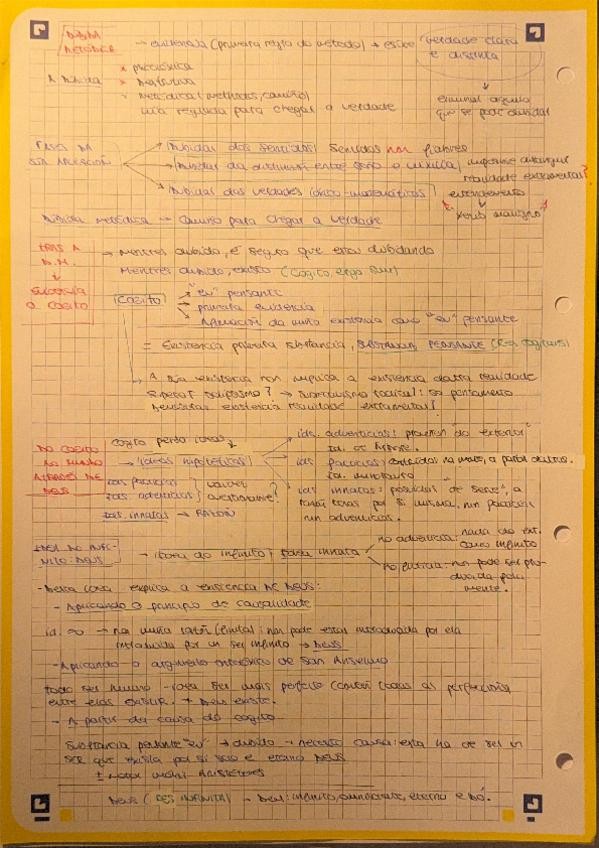 DÚBIDA METÓDICA → evidencia (primeira regra do método) → existe verdade clara e distinta
↓
eliminar aquilo que se pode dubidar
A Dúbida
× psicolóxica
× definitiva
✓ metódica (methodos, camiño)
vía regrada para chegar a verdade
FASES DA SÚA APLICACIÓN
Dubidar dos sentidos | Sentidos non fiables
Dubidar da distinción entre soño e vixilia | imposible distinguir realidade extramental?
Dubidar das verdades lóxico-matemáticas | entendemento
"xenio maligno"
Dúbida metódica → Camiño para chegar a verdade
TRAS A D.M. ↓ O COGITO
→ Mentres dubido, é seguro que estou dubidando
Mentres dubido, existo (Cogito, ergo sum)
COGITO
→ "eu" pensante
→ primeira evidencia
→ Afirmación da miña existencia como "eu" pensante
= Evidencia primeira substancia, SUBSTANCIA PENSANTE (Res cogitans)
→ A súa existencia non implica a existencia doutra realidade
superar solipsismo? → Subxectivismo radical: só pensamento
existencia realidade extramental.
DO COGITO AO MUNDO A TRAVÉS DE DEUS
Cogito
→ Ideas
ids. adventicias: proceden "do exterior"
id. de árbore.
ids facticias: construídas na mente, a partir doutras.
id. minotauro
ids innatas: posuídas "de serie", a
razón por si mesma, non facticias,
nin adventicias.
ids facticias
ids adventicias
ids. innatas → RAZÓN
IDEA DO INFINITO: DEUS
→ idea do infinito: idea innata
no adventicia: nada do ext. é infinito
no facticia: non pode ser producida pola mente.
- Desta idea explica a existencia de Deus:
- Aplicando o principio de causalidade
id. ∞ → na miña razón (finita): non pode estar introducida por ela
introducida por un ser infinito → Deus
- Aplicando o argumento ontolóxico de San Anselmo
todo ser humano → idea ser máis perfecto (contén todas as perfeccións
entre elas EXISTIR. → Deus existe.
- A partir da causa do cogito
Substancia pensante "eu" → dubido → necesito causa: esta ha de ser un
SER que exista por si só e eterno DEUS
± motor inmóbil Aristóteles
Deus (RES INFINITA) → Deus: infinito, omnisciente, eterno e bó.